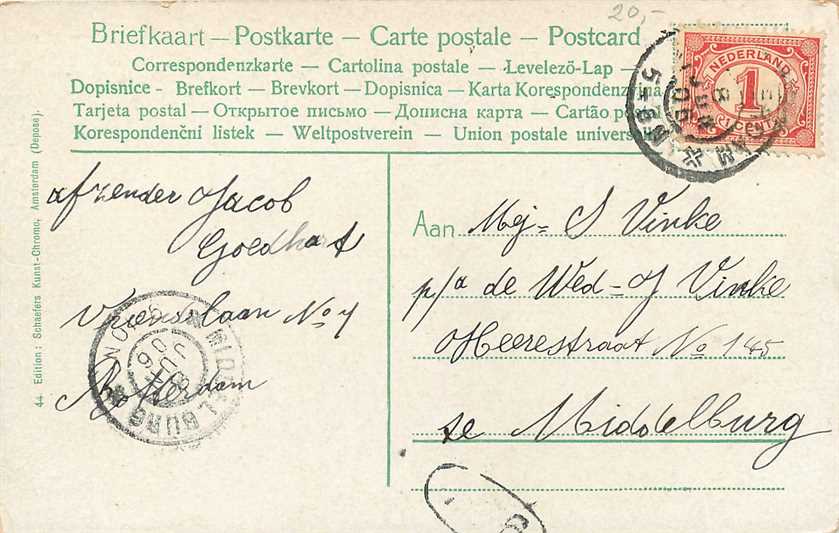 20,-
Briefkaart — Postkarte — Carte postale — Postcard
Correspondenzkarte — Cartolina postale — Levelezö-Lap
Dopisnice - Brefkort — Brevkort — Dopisnica — Karta Korespondenzina
Tarjeta postal — Открытое письмо — Дописна карта — Cartão po
Korespondenční listek — Weltpostverein — Union postale univers
NEDERLAND
1
CENT
5-6N
8 JUN 06
44 Edition: Schaefers Kunst-Chromo, Amsterdam (Depose).
afzender Jacob
Goedhart
No 7
Rotterdam
MIDDELBURG
Aan Mej= S Vinke
p/a de Wed= J Vinke
Heerestraat No 145
te Middelburg